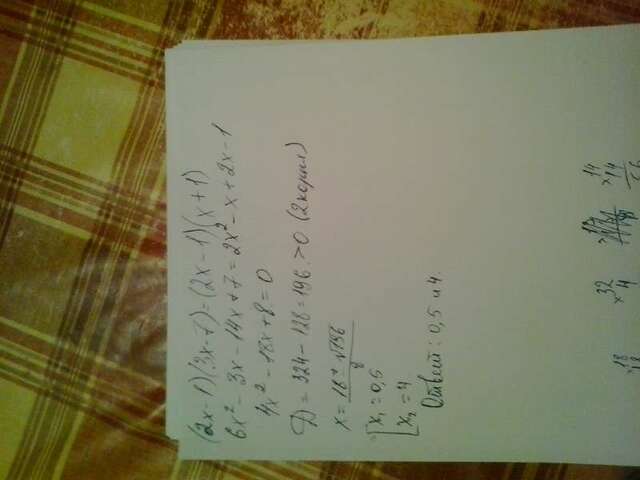 (2x-1)(3x-7)=(2x-1)(x+1)
6x²-3x-14x+7=2x²-x+2x-1
4x²-18x+8=0
D=324-128=196>0 (2 корня)
x=18±√196/8
[x₁=0,5
x₂=4
Ответ: 0,5 и 4.
×18
18
×32
4
×14
14
56